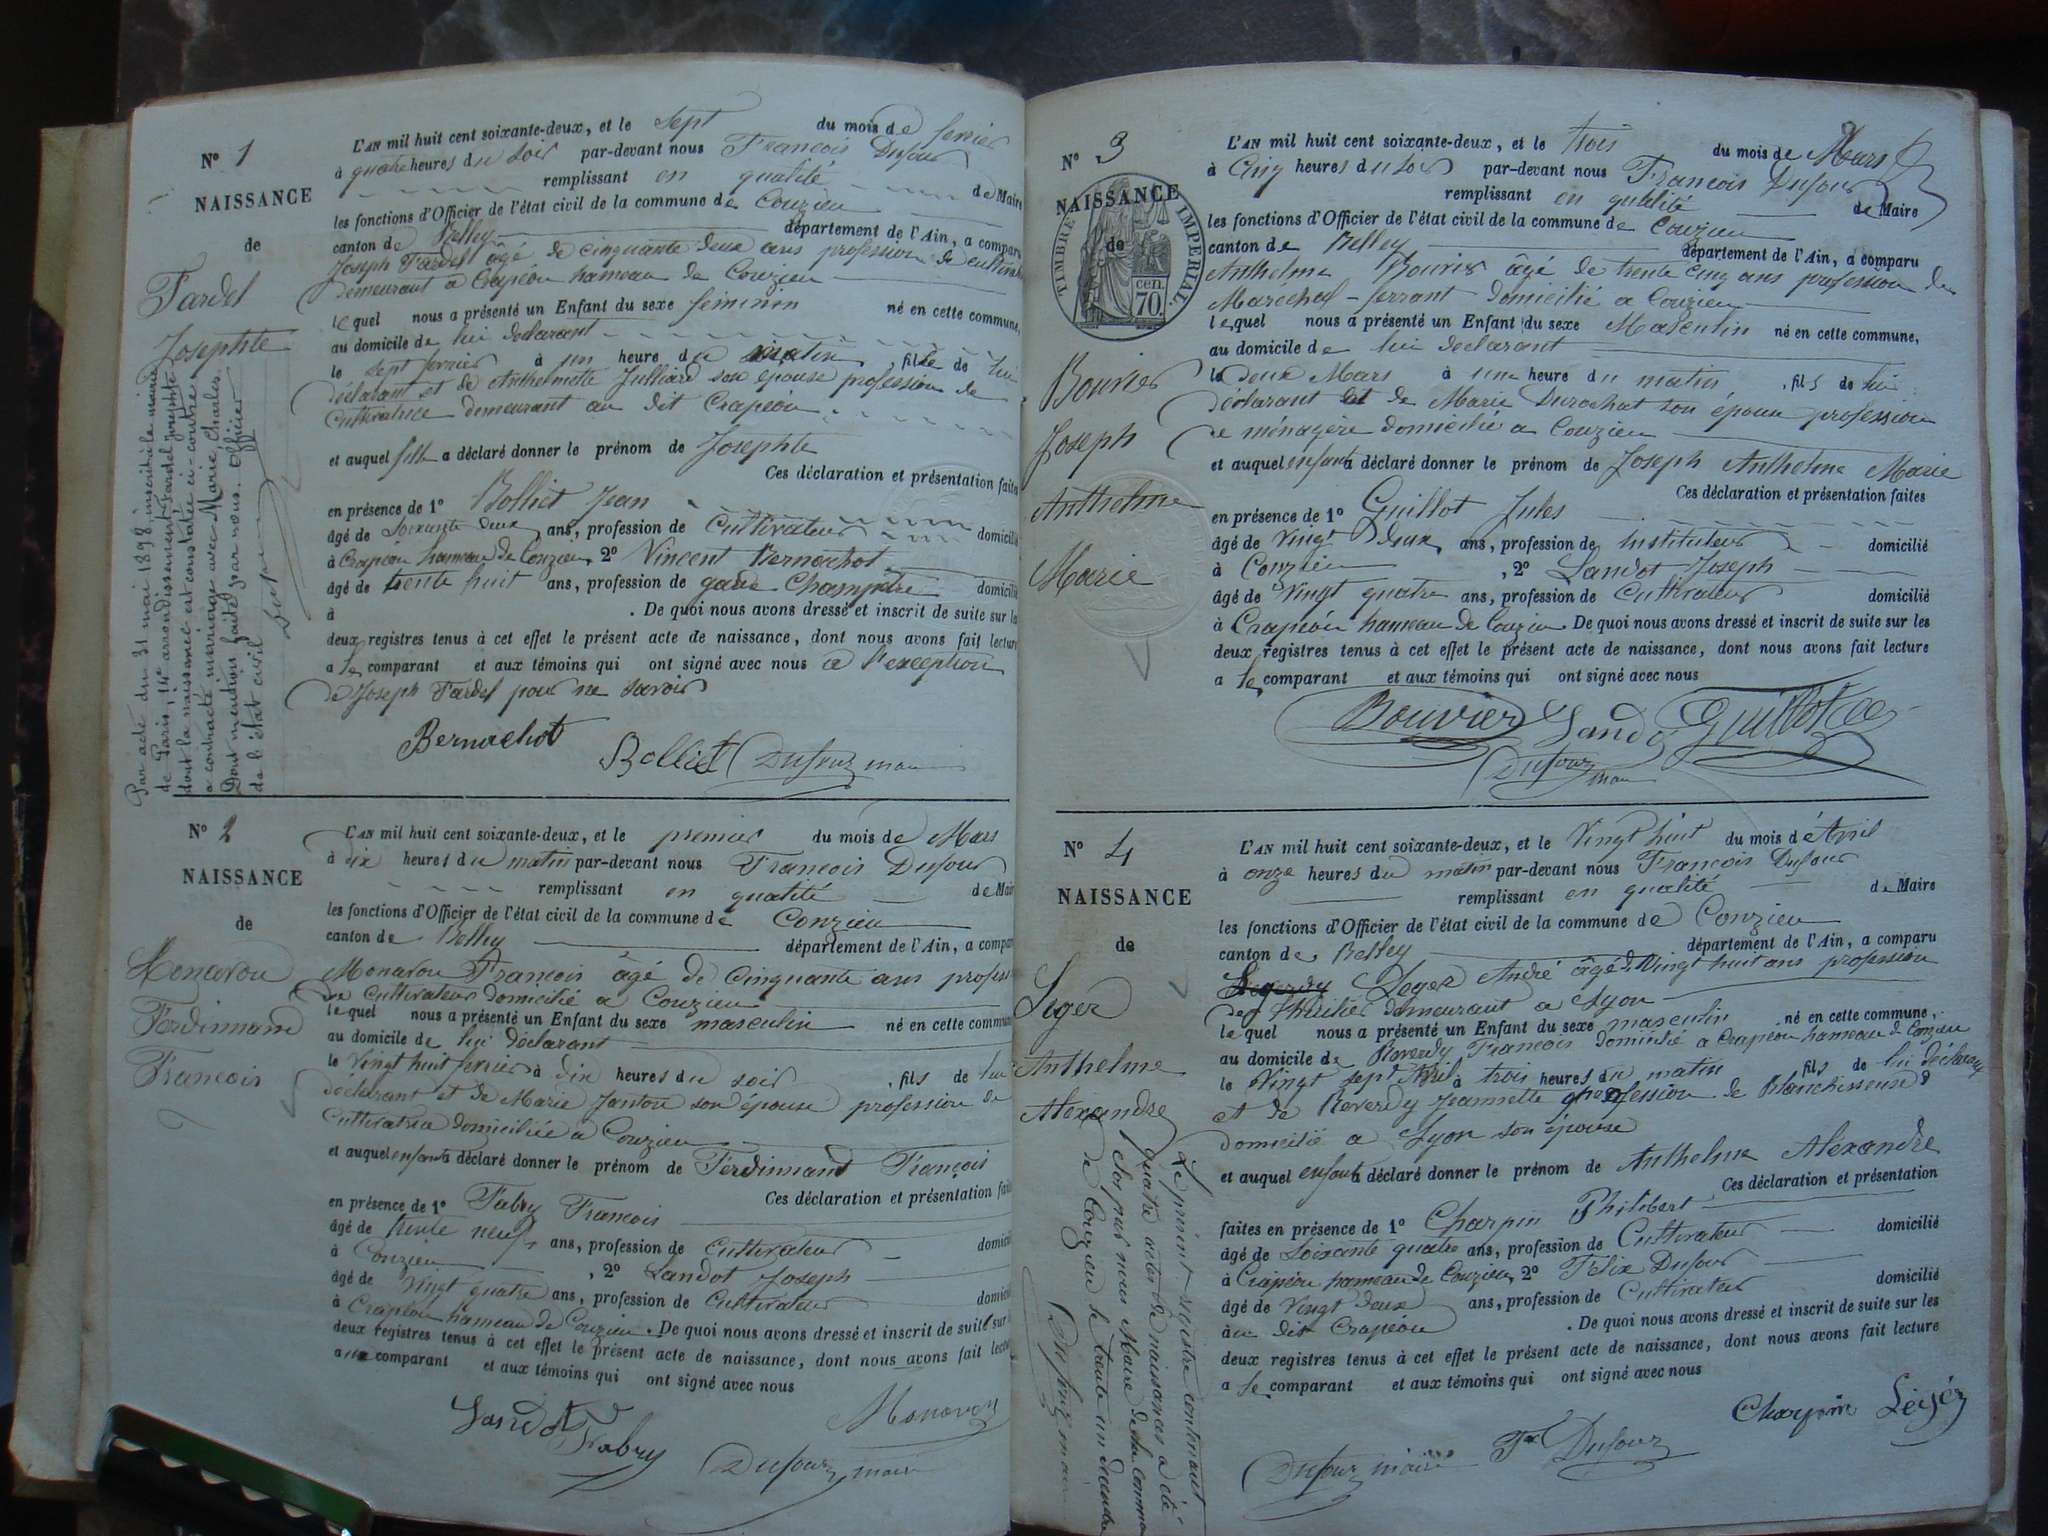 N° 1
NAISSANCE
de
Fardel
Josephte
Par acte du 31 mai 1898, inscrit à la mairie
de Paris, 14e arrondissement, Fardel Josephte
dont la naissance est constatée ci-contre
a contracté mariage avec Marie Charles.
Dont mention faite par nous officier
de l'état civil
L'AN mil huit cent soixante-deux, et le sept du mois de fevrier
à quatre heures du soir par-devant nous François Dufour
remplissant en qualité de Maire
les fonctions d'Officier de l'état civil de la commune de Conzieu
canton de Belley département de l'Ain, a comparu
Joseph Fardel âgé de cinquante deux ans profession de cultivat
demeurant a Crapéou hameau de Conzieu
lequel nous a présenté un Enfant du sexe féminin né en cette commune,
au domicile de lui declarant
le sept fevrier à un heure du matin, fille de lui
déclarant et de Anthelmette Julliard son épouse profession de
Cultivatrice demeurant au dit Crapéou
et auquel fille a déclaré donner le prénom de Josephte
Ces déclaration et présentation faites
en présence de 1° Bolliet Jean
âgé de soixante deux ans, profession de Cultivateur domicilié
à Crapéou hameau de Conzieu, 2° Vincent Bernachot
âgé de trente huit ans, profession de garde Champetre domicilié
à . De quoi nous avons dressé et inscrit de suite sur les
deux registres tenus à cet effet le présent acte de naissance, dont nous avons fait lecture
a le comparant et aux témoins qui ont signé avec nous a l'exception
de Joseph Fardel pour ne savoir
Bernachot Bolliet Dufour mair
N° 2
NAISSANCE
de
Monavon
Ferdinnand
François
L'AN mil huit cent soixante-deux, et le premier du mois de Mars
à dix heures du matin par-devant nous François Dufour
remplissant en qualité de Maire
les fonctions d'Officier de l'état civil de la commune de Conzieu
canton de Belley département de l'Ain, a comparu
Monavon François âgé de Cinquante ans profess
de cultivateur domicilié a Conzieu
lequel nous a présenté un Enfant du sexe masculin né en cette commune
au domicile de lui déclarant
le Vingt huit fevrier à dix heures du soir, fils de lui
déclarant et de Marie Janton son épouse profession de
Cultivatrice domiciliée a Conzieu
et auquel enfant a déclaré donner le prénom de Ferdinnand François
Ces déclaration et présentation fait
en présence de 1° Fabry François
âgé de trente neuf ans, profession de Cultivateur domicil
à Conzieu, 2° Landot Joseph
âgé de Vingt quatre ans, profession de Cultivateur domicil
à Crapéou hameau de Conzieu. De quoi nous avons dressé et inscrit de suite sur
deux registres tenus à cet effet le présent acte de naissance, dont nous avons fait lectu
a comparant et aux témoins qui ont signé avec nous
Landot Fabry Monavon
Dufour, mair
N° 3
NAISSANCE
de
TIMBRE IMPERIAL.
70 cen.
Bouvier
Joseph
Anthelme
Marie
L'AN mil huit cent soixante-deux, et le trois du mois de Mars
à Cinq heures du soir par-devant nous François Dufour
remplissant en qualité de Maire
les fonctions d'Officier de l'état civil de la commune de Conzieu
canton de Belley département de l'Ain, a comparu
Anthelme Bouvier âgé de trente cinq ans profession de
Maréchal-ferrant domicilié a Conzieu
lequel nous a présenté un Enfant du sexe Masculin né en cette commune,
au domicile de lui declarant
le deux Mars à une heure du matin, fils de lui
déclarant et de Marie Durochat son épouse profession
de ménagère domicilié a Conzieu
et auquel enfant a déclaré donner le prénom de Joseph Anthelme Marie
Ces déclaration et présentation faites
en présence de 1° Guillot Jules
âgé de Vingt deux ans, profession de instituteur domicilié
à Conzieu, 2° Landot Joseph
âgé de Vingt quatre ans, profession de Cultivateur domicilié
à Crapéou hameau de Conzieu. De quoi nous avons dressé et inscrit de suite sur les
deux registres tenus à cet effet le présent acte de naissance, dont nous avons fait lecture
a le comparant et aux témoins qui ont signé avec nous
Bouvier Landot Guillot
Dufour mair
N° 4
NAISSANCE
de
Leger
Anthelme
Alexandre
Le présent registre contenant
quatre actes de naissances a été
clos par nous Maire de la commune
de Conzieu le trente un décembre
Dufour mair
L'AN mil huit cent soixante-deux, et le Vingt huit du mois d'Avril
à onze heures du matin par-devant nous François Dufour
remplissant en qualité de Maire
les fonctions d'Officier de l'état civil de la commune de Conzieu
canton de Belley département de l'Ain, a comparu
Leger André âgé de Vingt huit ans profession
demeurant a Lyon
lequel nous a présenté un Enfant du sexe masculin né en cette commune,
au domicile de Reverdy François domicilié a Crapéou hameau de Conzieu
le Vingt sept Avril à trois heures du matin fils de lui déclarant
et de Reverdy Jeannette profession de Blanchisseuse
domicilié a Lyon son épouse
et auquel enfant a déclaré donner le prénom de Anthelme Aléxandre
Ces déclaration et présentation
faites en présence de 1° Charpin Philibert
âgé de Soixante quatre ans, profession de Cultivateur domicilié
à Crapéou hameau de Conzieu, 2° Félix Dufour
âgé de Vingt deux ans, profession de Cultivateur domicilié
au dit Crapéou . De quoi nous avons dressé et inscrit de suite sur les
deux registres tenus à cet effet le présent acte de naissance, dont nous avons fait lecture
a le comparant et aux témoins qui ont signé avec nous
Charpin Leger
Dufour maire Fx Dufour